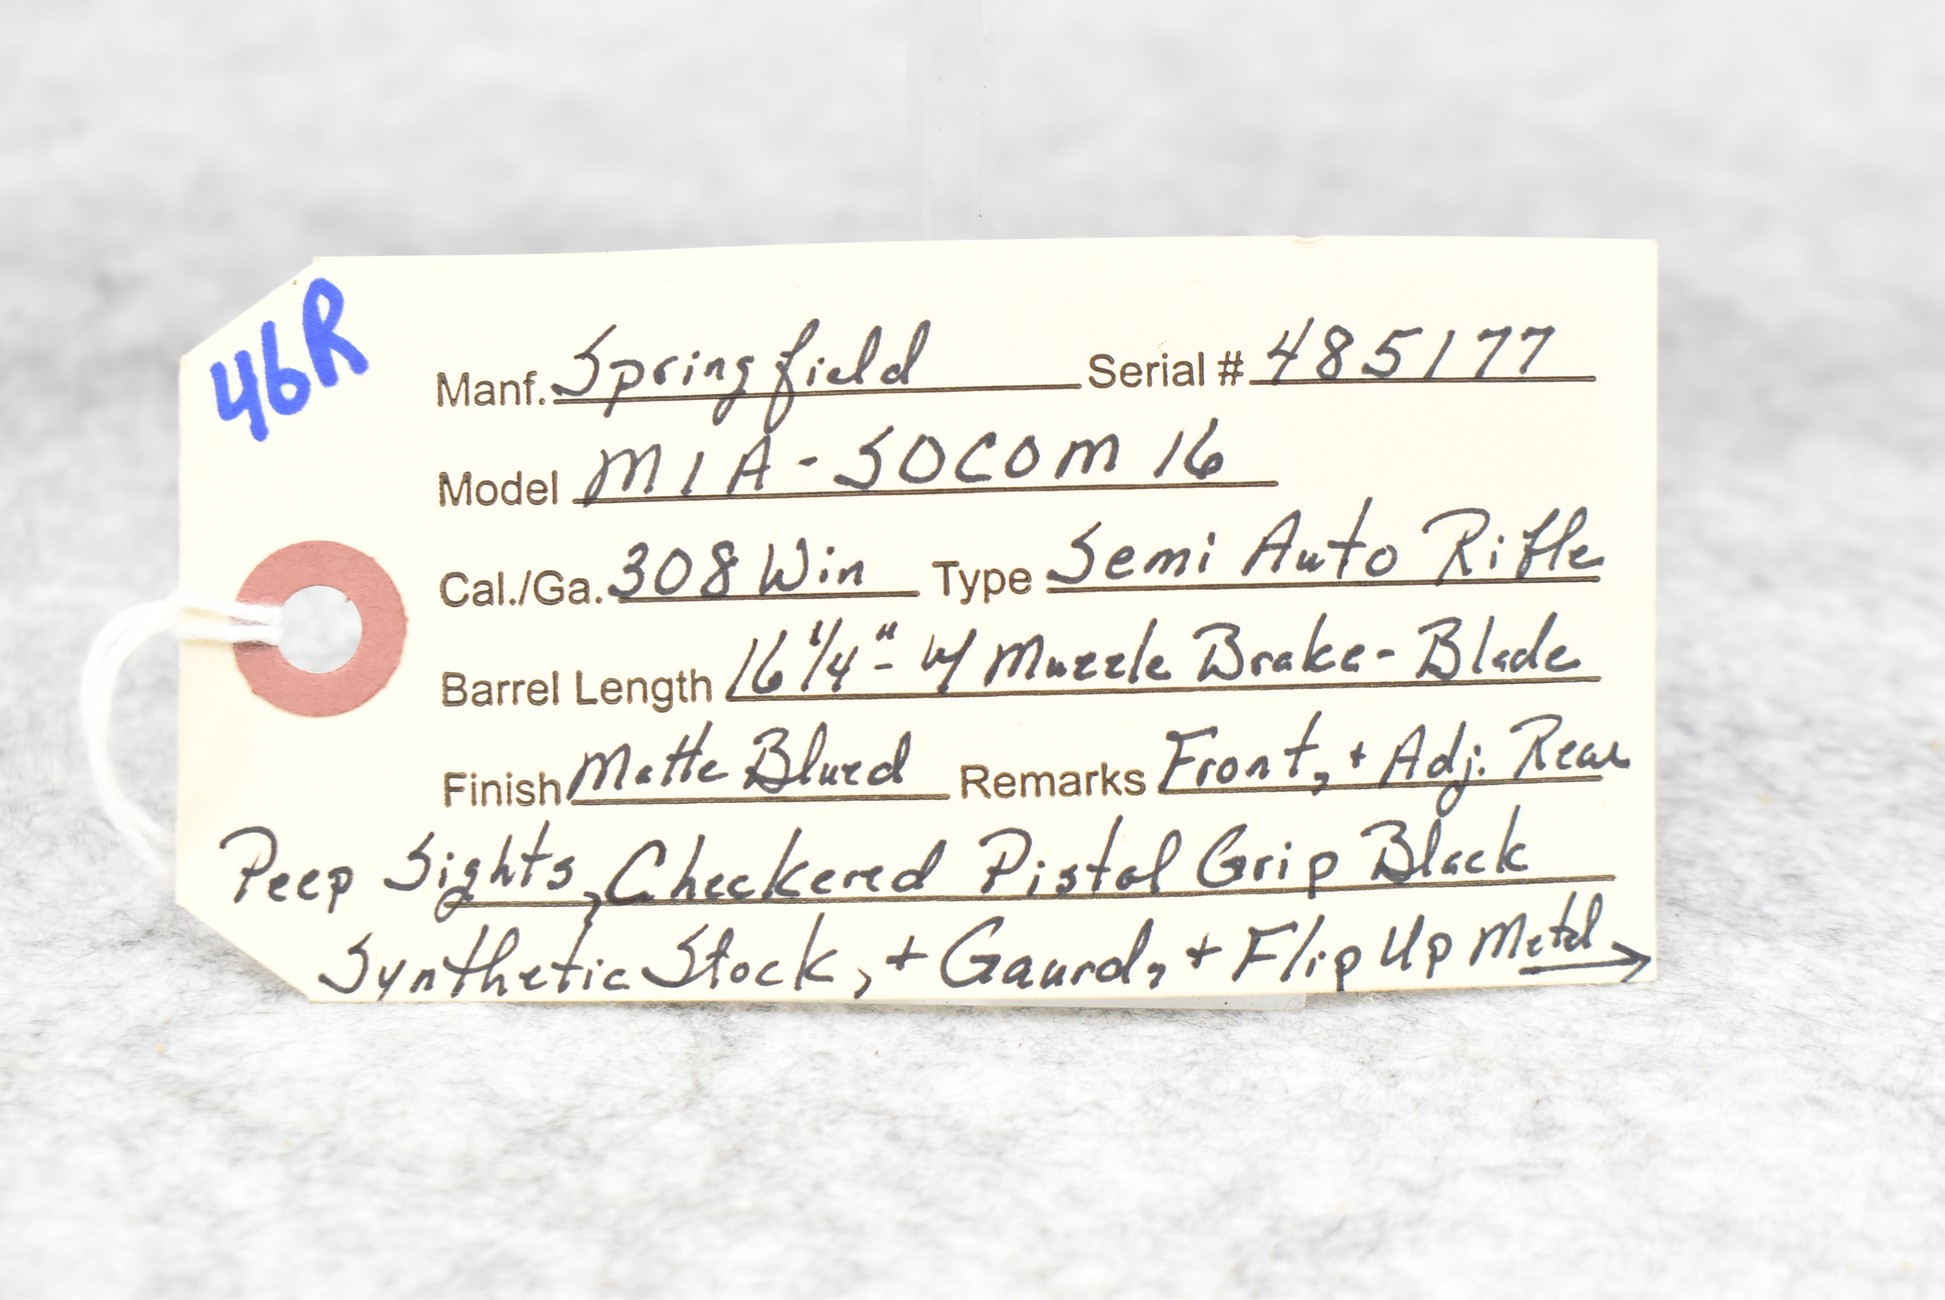 46R
Manf. Springfield Serial # 485177
Model M1A - SOCOM 16
Cal./Ga. 308 Win Type Semi Auto Rifle
Barrel Length 16 1/4" - w/ Muzzle Brake - Blade
Finish Matte Blued Remarks Front, + Adj. Rear
Peep Sights, Checkered Pistol Grip Black
Synthetic Stock, + Gaurd, + Flip Up Metal →